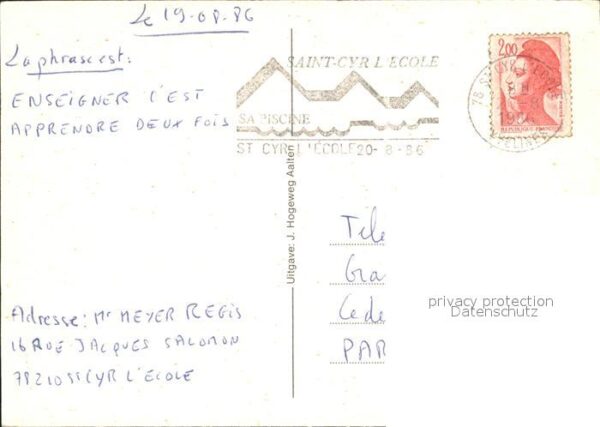 Le 19-08-86
La phrase est:
ENSEIGNER C'EST
APPRENDRE DEUX FOIS
Adresse: Mr MEYER REGIS
16 RUE JACQUES SALOMON
78210 ST CYR L'ECOLE
Uitgave: J. Hogeweg Aalten
SAINT-CYR L ECOLE
SA PISCINE
ST CYR L'ÉCOLE 20-8-86
2,00
78 ST CYR L'ECOLE
1986
YVELINES
REPUBLIQUE FRANÇAISE
Tele
Gra
Cede
PAR
privacy protection
Datenschutz